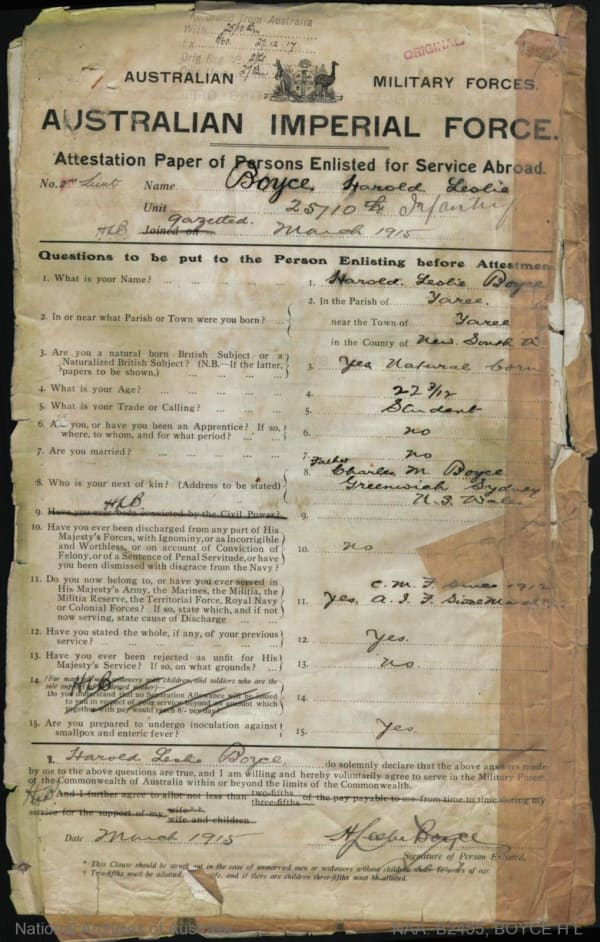 from Australia
27.12.17
ORIGINAL
AUSTRALIAN MILITARY FORCES.
AUSTRALIAN IMPERIAL FORCE.
Attestation Paper of Persons Enlisted for Service Abroad.
No. 2nd Lieut Name Boyce, Harold Leslie
Unit 25/10 Infantry
HLB Joined on gazetted. March 1915
Questions to be put to the Person Enlisting before Attestmen
1. What is your Name? 1. Harold Leslie Boyce
2. In or near what Parish or Town were you born? 2. In the Parish of Taree.
near the Town of Taree
in the County of New South
3. Are you a natural born British Subject or a
Naturalized British Subject? (N.B.—If the latter,
papers to be shown.) 3. Yes Natural born
4. What is your Age? 4. 22 3/12
5. What is your Trade or Calling? 5. Student
6. Are you, or have you been an Apprentice? If so,
where, to whom, and for what period? 6. no
7. Are you married? 7. no
8. Who is your next of kin? (Address to be stated) 8. Father Charles M. Boyce
Greenwich Sydney
N. S. Wales
HLB
9. Have you ever been convicted by the Civil Power? 9.
10. Have you ever been discharged from any part of His
Majesty's Forces, with Ignominy, or as Incorrigible
and Worthless, or on account of Conviction of
Felony, or of a Sentence of Penal Servitude, or have
you been dismissed with disgrace from the Navy? 10. no
11. Do you now belong to, or have you ever served in
His Majesty's Army, the Marines, the Militia, the
Militia Reserve, the Territorial Force, Royal Navy
or Colonial Forces? If so, state which, and if not
now serving, state cause of Discharge 11. C. M. F. Since 1912
Yes, A. I. F. Since March
12. Have you stated the whole, if any, of your previous
service? 12. Yes.
13. Have you ever been rejected as unfit for His
Majesty's Service? If so, on what grounds? 13. no
14. HLB
Do you understand that no Separation Allowance will be issued
to you in respect of your service beyond an amount which
together with pay would reach 8/- per day?
15. Are you prepared to undergo inoculation against
smallpox and enteric fever? 15. Yes
I, Harold Leslie Boyce do solemnly declare that the above answers made
by me to the above questions are true, and I am willing and hereby voluntarily agree to serve in the Military Forces
of the Commonwealth of Australia within or beyond the limits of the Commonwealth.
HLB And I further agree to allot not less than two-fifths three-fifths of the pay payable to me from time to time during my
service for the support of my wife wife and children
Date March 1915 H Leslie Boyce
Signature of Person Enlisted.
* This Clause should be struck out in the case of unmarried men or widowers without children under 16 years of age.
† Two-fifths must be allotted wife, and if there are children three-fifths must be allotted.
National Archives of Australia NAA: B2455, BOYCE H L